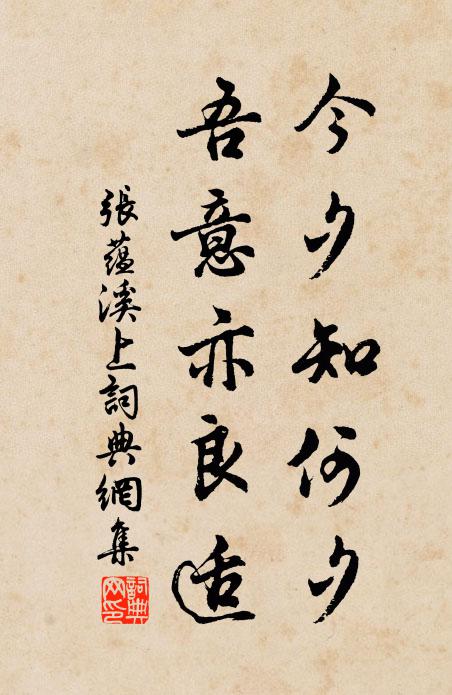 今夕知何夕
吾意亦良适
張蘊溪上詞典網集
詞典网印